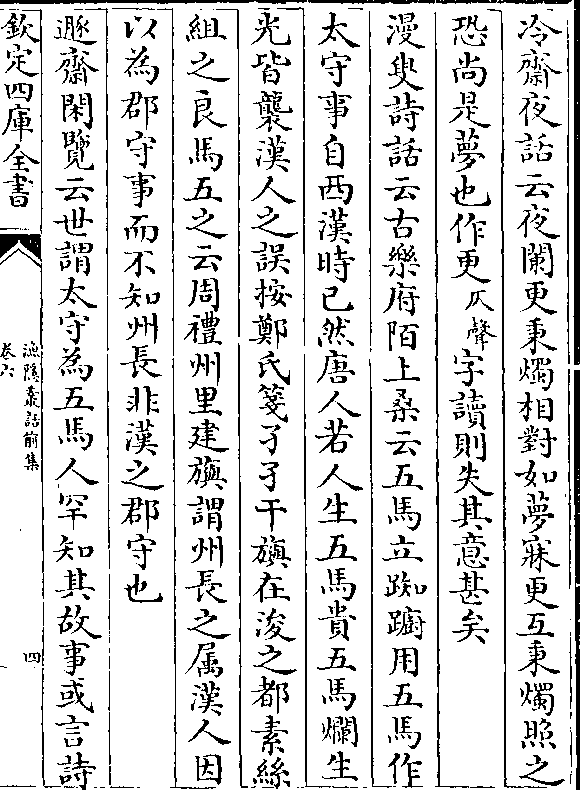 冷齋夜話云夜闌更秉燭相對如夢寐更互秉燭照之
恐尚是夢也作更仄聲字讀則失其意甚矣
漫叟詩話云古樂府陌上桑云五馬立踟躕用五馬作
太守事自西漢時已然唐人若人生五馬貴五馬爛生
光皆襲漢人之誤按鄭氏箋孑孑干旟在浚之都素絲
組之良馬五之云周禮州里建旟謂州長之属漢人因
以為郡守事而不知州長非漢之郡守也
遯齋閑覽云世謂太守為五馬人罕知其故事或言詩
欽定四庫全書
漁隱叢話前集
卷六
四